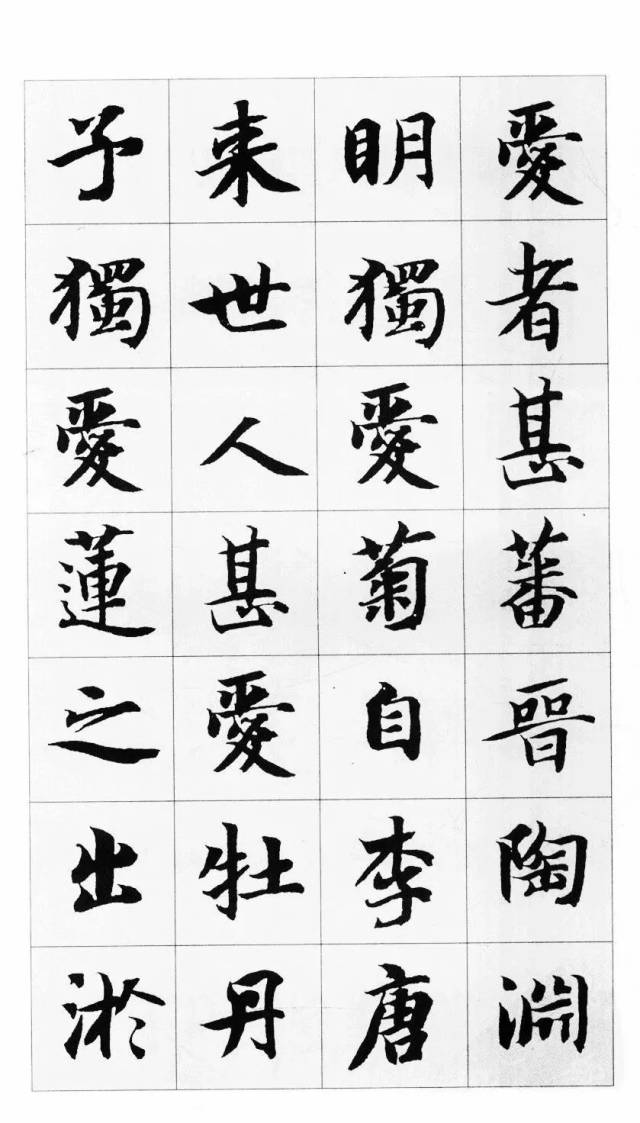 愛者甚蕃晉陶淵
明獨愛菊自李唐
来世人甚愛牡丹
予獨愛蓮之出淤